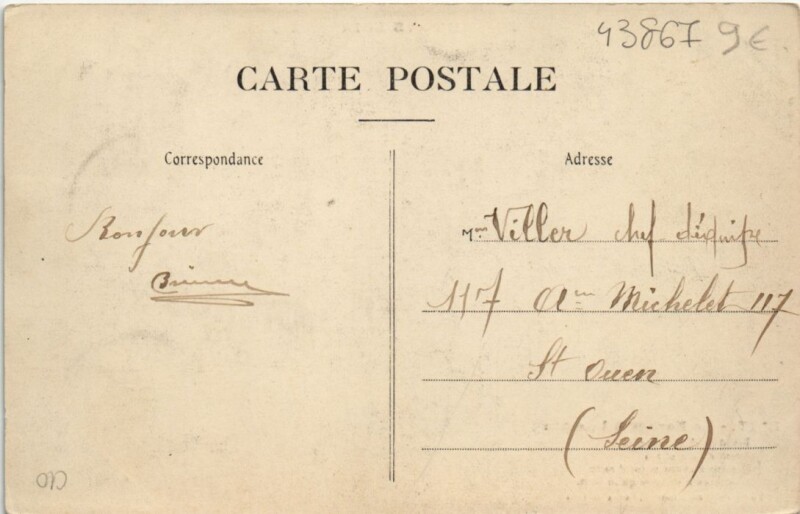 43867 9€
CARTE POSTALE
Correspondance
Bonjour
Adresse
Mme Viller chef déquipe
117 Aue Michelet 117
St Ouen
(Seine)